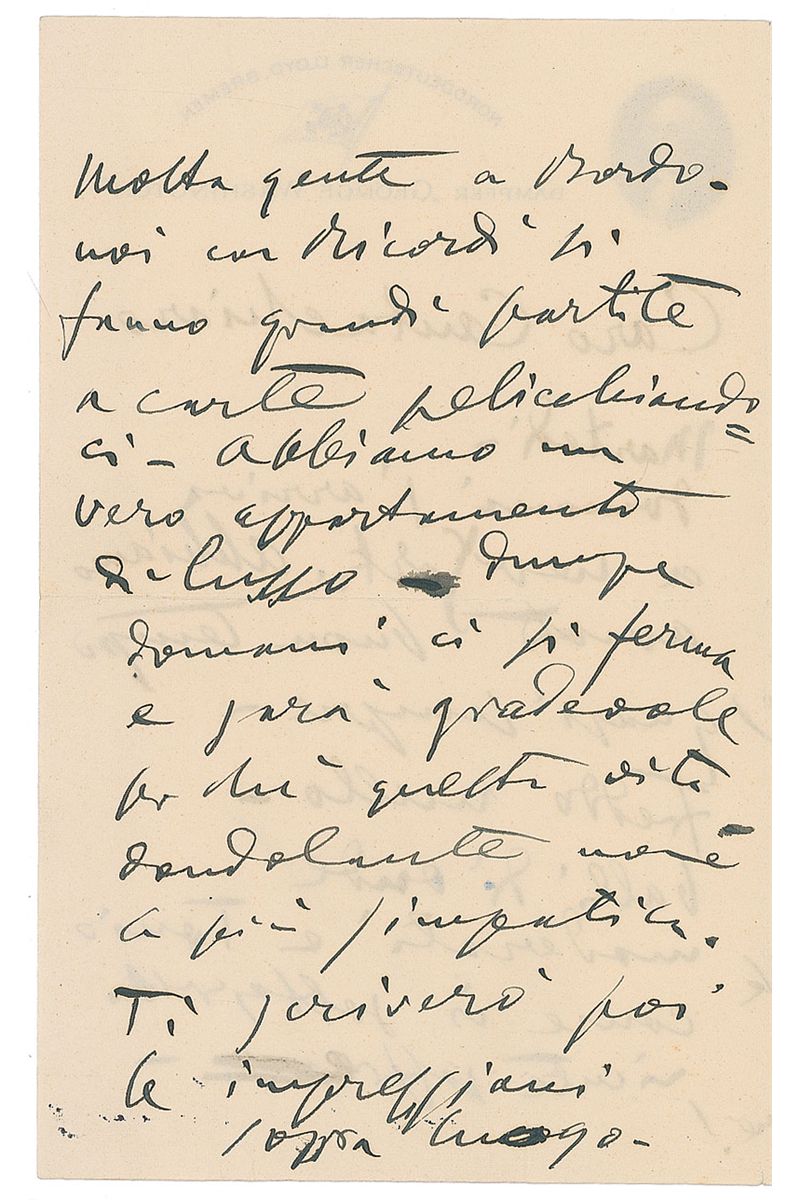 Molta gente a Bordo.
noi con Ricordi si
fanno grandi partite
a carte pelicchiando=
ci – Abbiamo un
vero appartamento
di lusso – dunque
domani ci si ferma
e sarà gradevole
perchè questa vita
dondolante non è
la più simpatica.
Ti scriverò poi
le impressioni
sopra luogo –